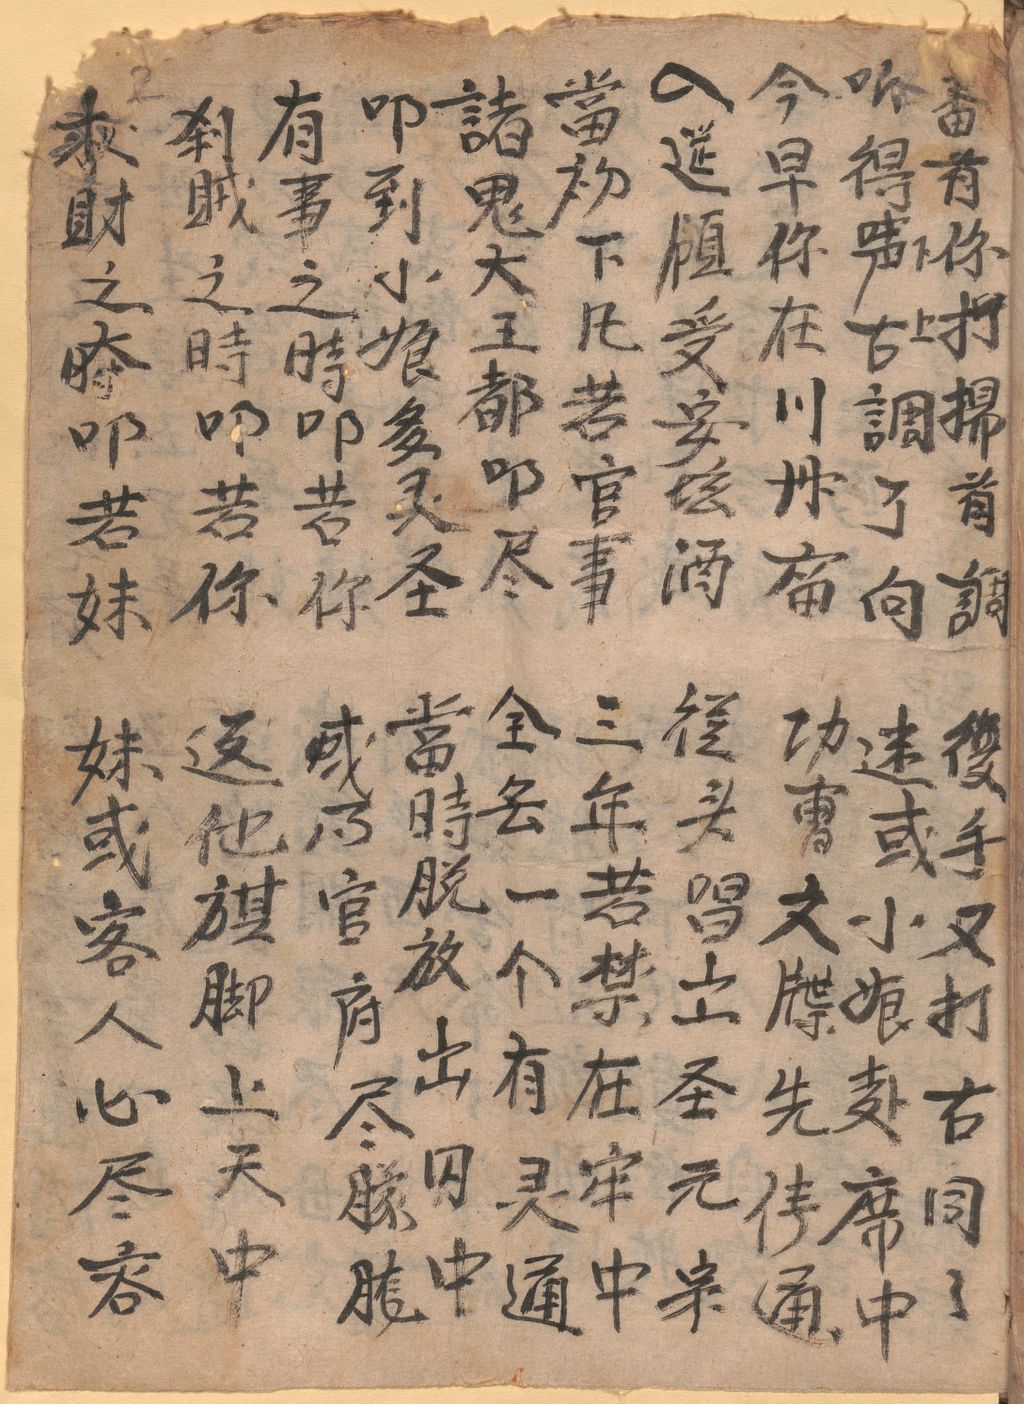 番首你打掃首調 雙手又打右同了
听得声古調了向 迷或小娘赴席中
下上
今早你在川冊宿 功曹文牒先传通
入筵領受安坛酒 從头唱出圣元宗
當初下凡若官事 三年若禁在牢中
諸鬼大王都叩尽 全無一个有灵通
叩到小娘多灵圣 當時脱放出囚中
有事之時叩若你 或乃官府尽朦朧
剎賊之時叩若你 返他旗脚上天中
求財之時叩若妹 妹或客人心尽容
2